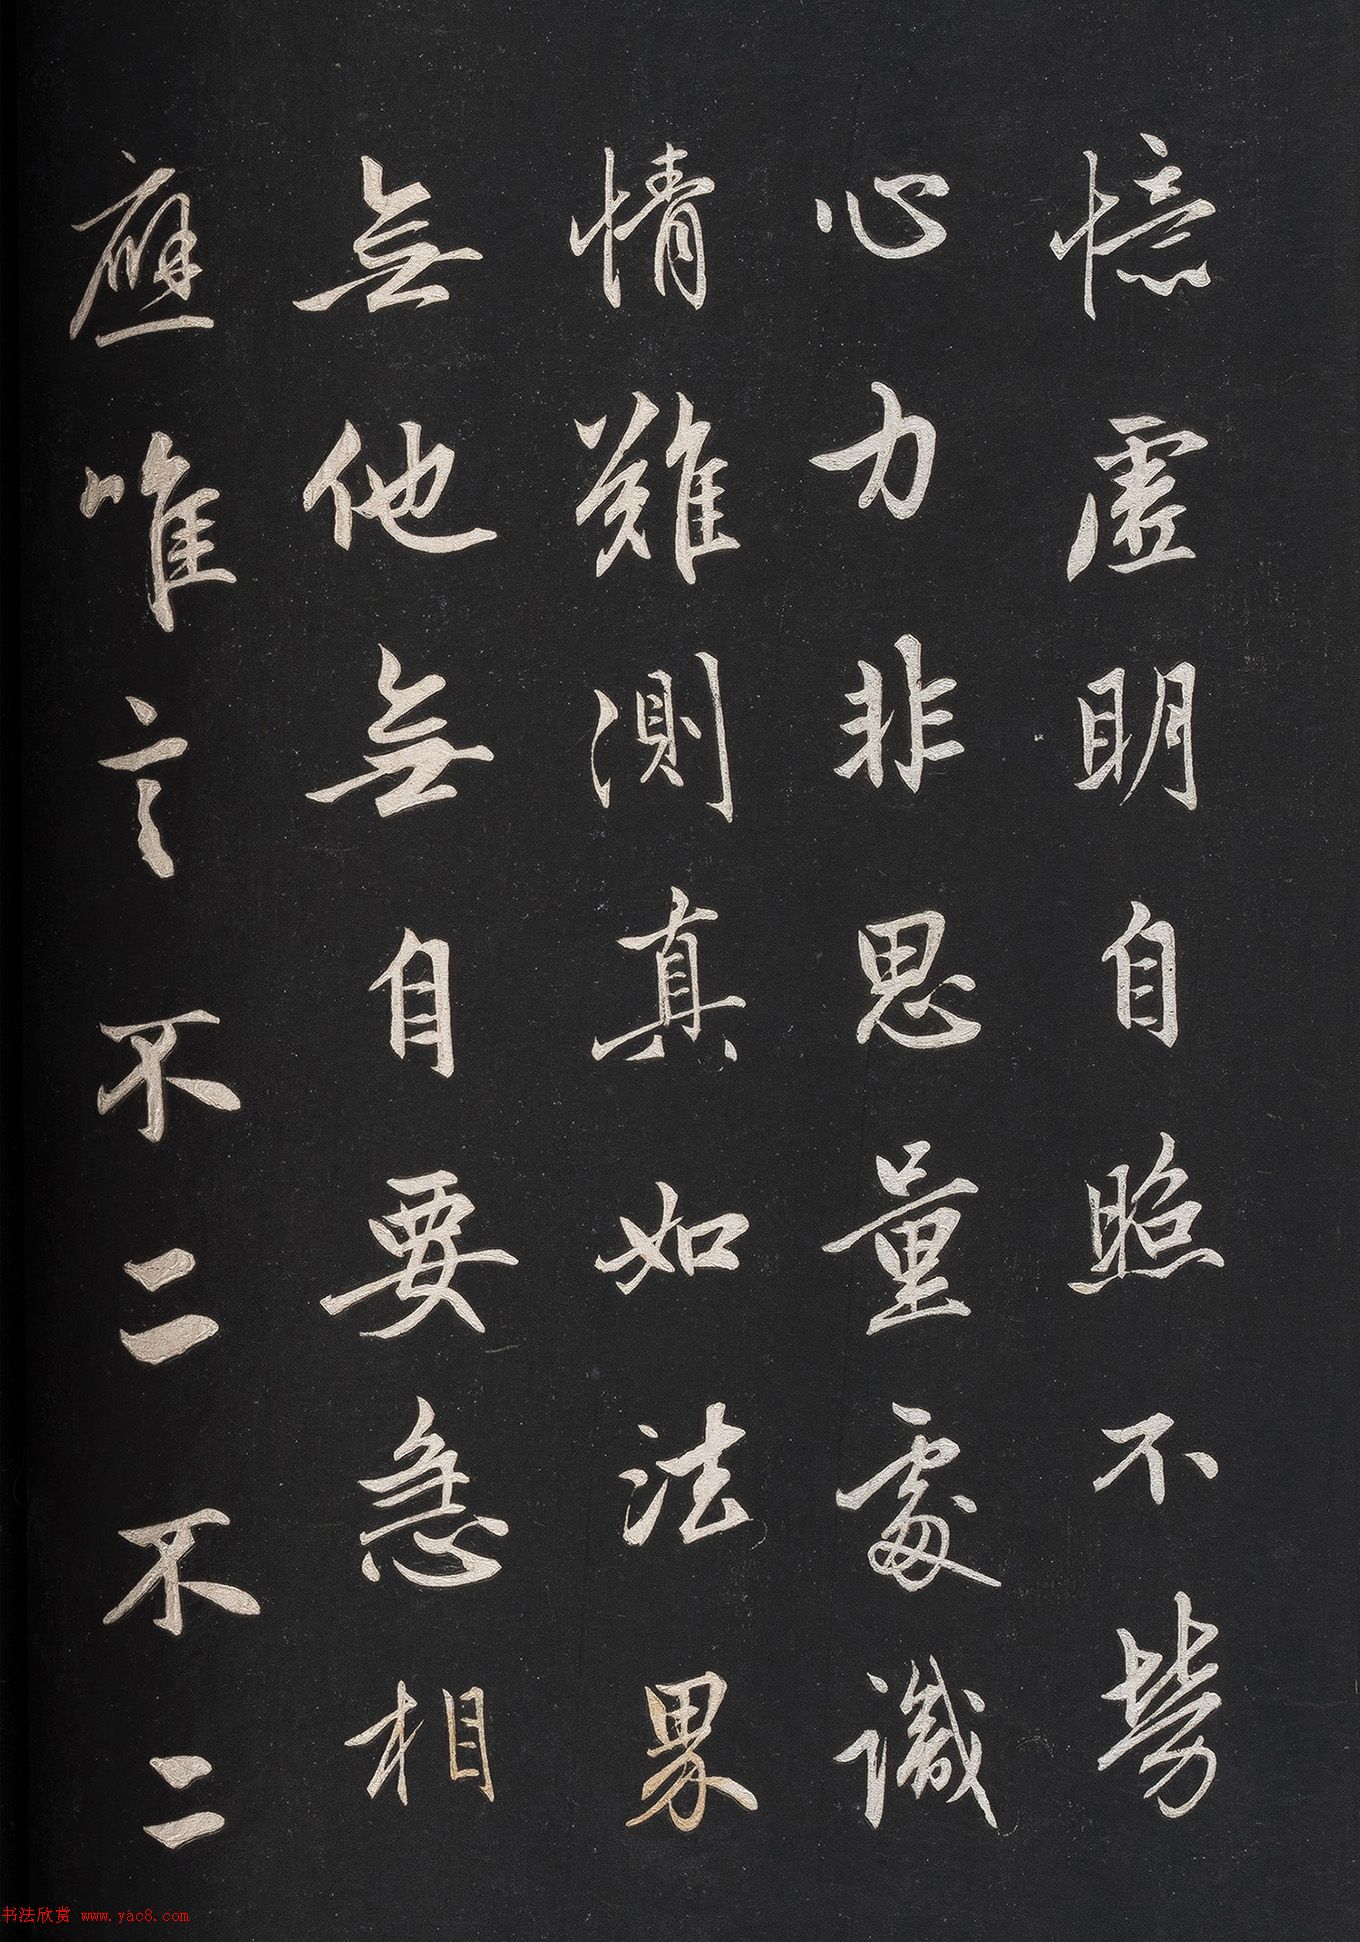 憶虛明自照不勞
心力非思量處識
情難測真如法界
無他無自要急相
應唯言不二不二
书法欣赏 www.yac8.com